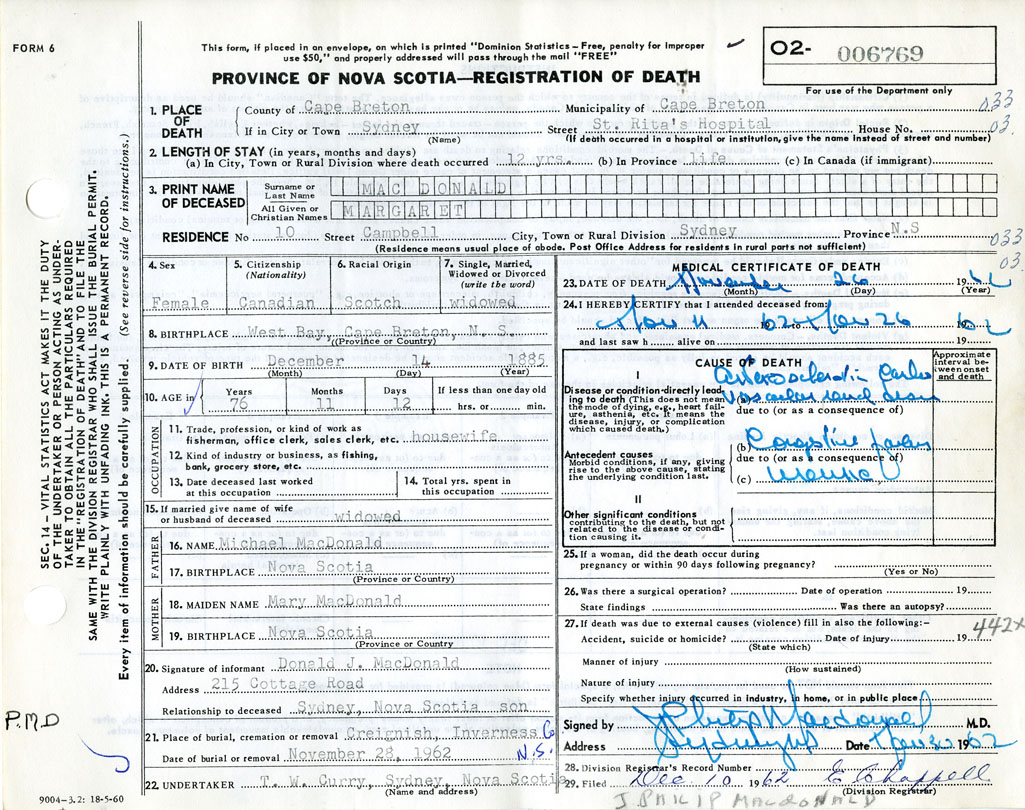 FORM 6
This form, if placed in an envelope, on which is printed "Dominion Statistics – Free, penalty for improper
use $50," and properly addressed will pass through the mail "FREE"
PROVINCE OF NOVA SCOTIA—REGISTRATION OF DEATH
O2- 006769
For use of the Department only
1. PLACE OF DEATH
County of Cape Breton Municipality of Cape Breton 033
If in City or Town Sydney Street St. Rita's Hospital House No. 03.
(Name) (If death occurred in a hospital or institution, give the name instead of street and number)
2. LENGTH OF STAY (in years, months and days)
(a) In City, Town or Rural Division where death occurred 12 yrs. (b) In Province life (c) In Canada (if immigrant)
3. PRINT NAME OF DECEASED
Surname or Last Name MAC DONALD
All Given or Christian Names MARGARET
RESIDENCE No 10 Street Campbell City, Town or Rural Division Sydney Province N.S 033
(Residence means usual place of abode. Post Office Address for residents in rural parts not sufficient) 03.
4. Sex
Female
5. Citizenship
(Nationality)
Canadian
6. Racial Origin
Scotch
7. Single, Married,
Widowed or Divorced
(write the word)
widowed
8. BIRTHPLACE West Bay, Cape Breton, N. S.
(Province or Country)
9. DATE OF BIRTH December 14 1885
(Month) (Day) (Year)
10. AGE in Years Months Days If less than one day old
76 11 12 hrs. or min.
OCCUPATION
11. Trade, profession or kind of work as
fisherman, office clerk, sales clerk, etc. housewife
12. Kind of industry or business, as fishing,
bank, grocery store, etc.
13. Date deceased last worked
at this occupation
14. Total yrs. spent in
this occupation
15. If married give name of wife
or husband of deceased widowed
FATHER
16. NAME Michael MacDonald
17. BIRTHPLACE Nova Scotia
(Province or Country)
MOTHER
18. MAIDEN NAME Mary MacDonald
19. BIRTHPLACE Nova Scotia
(Province or Country
20. Signature of informant Donald J. MacDonald
Address 215 Cottage Road
Relationship to deceased Sydney, Nova Scotia son
21. Place of burial, cremation or removal Creignish, Inverness Co
Date of burial or removal November 28, 1962 N.S.
22. UNDERTAKER T. W. Curry, Sydney, Nova Scotia
(Name and address)
MEDICAL CERTIFICATE OF DEATH
23. DATE OF DEATH November 26 1962
(Month) (Day) (Year)
24. I HEREBY CERTIFY that I attended deceased from:
Nov 11 1962 to Nov 26 1962
and last saw h alive on 19
CAUSE OF DEATH
Approximate interval between onset and death
I
Disease or condition directly leading to death (This does not mean the mode of dying, e.g., heart failure, asthenia, etc. It means the disease, injury, or complication which caused death.)
due to (or as a consequence of)
Antecedent causes
Morbid conditions, if any, giving rise to the above cause, stating the underlying condition last.
(b) Congestive
due to (or as a consequence of)
(c)
II
Other significant conditions
contributing to the death, but not related to the disease or condition causing it.
25. If a woman, did the death occur during
pregnancy or within 90 days following pregnancy?
(Yes or No)
26. Was there a surgical operation? Date of operation 19
State findings Was there an autopsy?
27. If death was due to external causes (violence) fill in also the following:-
Accident, suicide or homicide? Date of injury 19 442x
(State which)
Manner of injury
(How sustained)
Nature of injury
Specify whether injury occurred in industry, in home, or in public place
Signed by J Philip Macdonald M.D.
Address Sydney NS Date Nov 30 1962
28. Division Registrar's Record Number
29. Filed Dec. 10 1962 E Chappell
(Division Registrar)
J. PHILIP MACDONALD
SEC. 14 – VITAL STATISTICS ACT MAKES IT THE DUTY
OF THE UNDERTAKER OR PERSON ACTING AS UNDER-
TAKER TO OBTAIN ALL THE PARTICULARS REQUIRED
IN THE "REGISTRATION OF DEATH" AND TO FILE THE
SAME WITH THE DIVISION REGISTRAR WHO SHALL ISSUE THE BURIAL PERMIT.
WRITE PLAINLY WITH UNFADING INK. THIS IS A PERMANENT RECORD.
Every item of information should be carefully supplied. (See reverse side for instructions.)
P.M.D
9004–3.2: 18-5-60